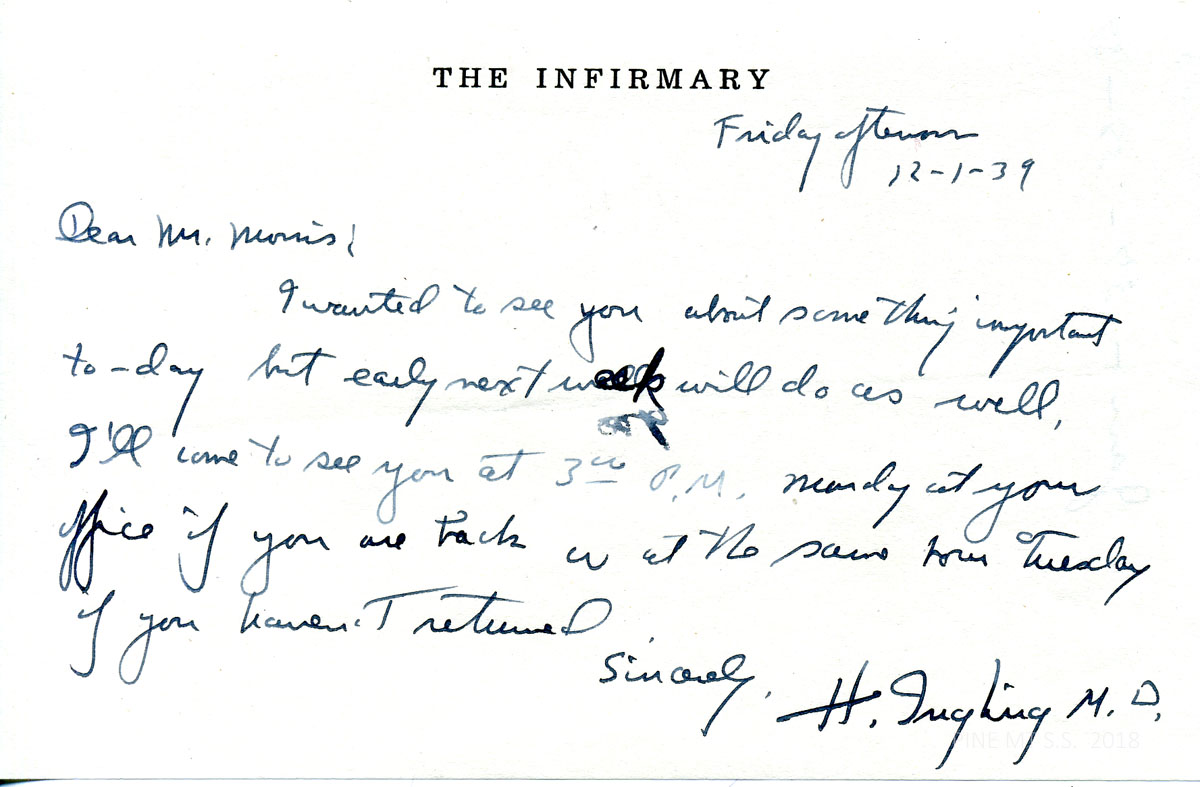 THE INFIRMARY
Friday afternoon
12-1-39
Dear Mr. Morris:
I wanted to see you about something important
to-day but early next week will do as well.
I'll come to see you at 3:00 P.M. Monday at your
office if you are back or at the same hour Tuesday
if you haven't returned.
Sincerely,
H. Ingling M.D.
PINE MT S.S. 2018